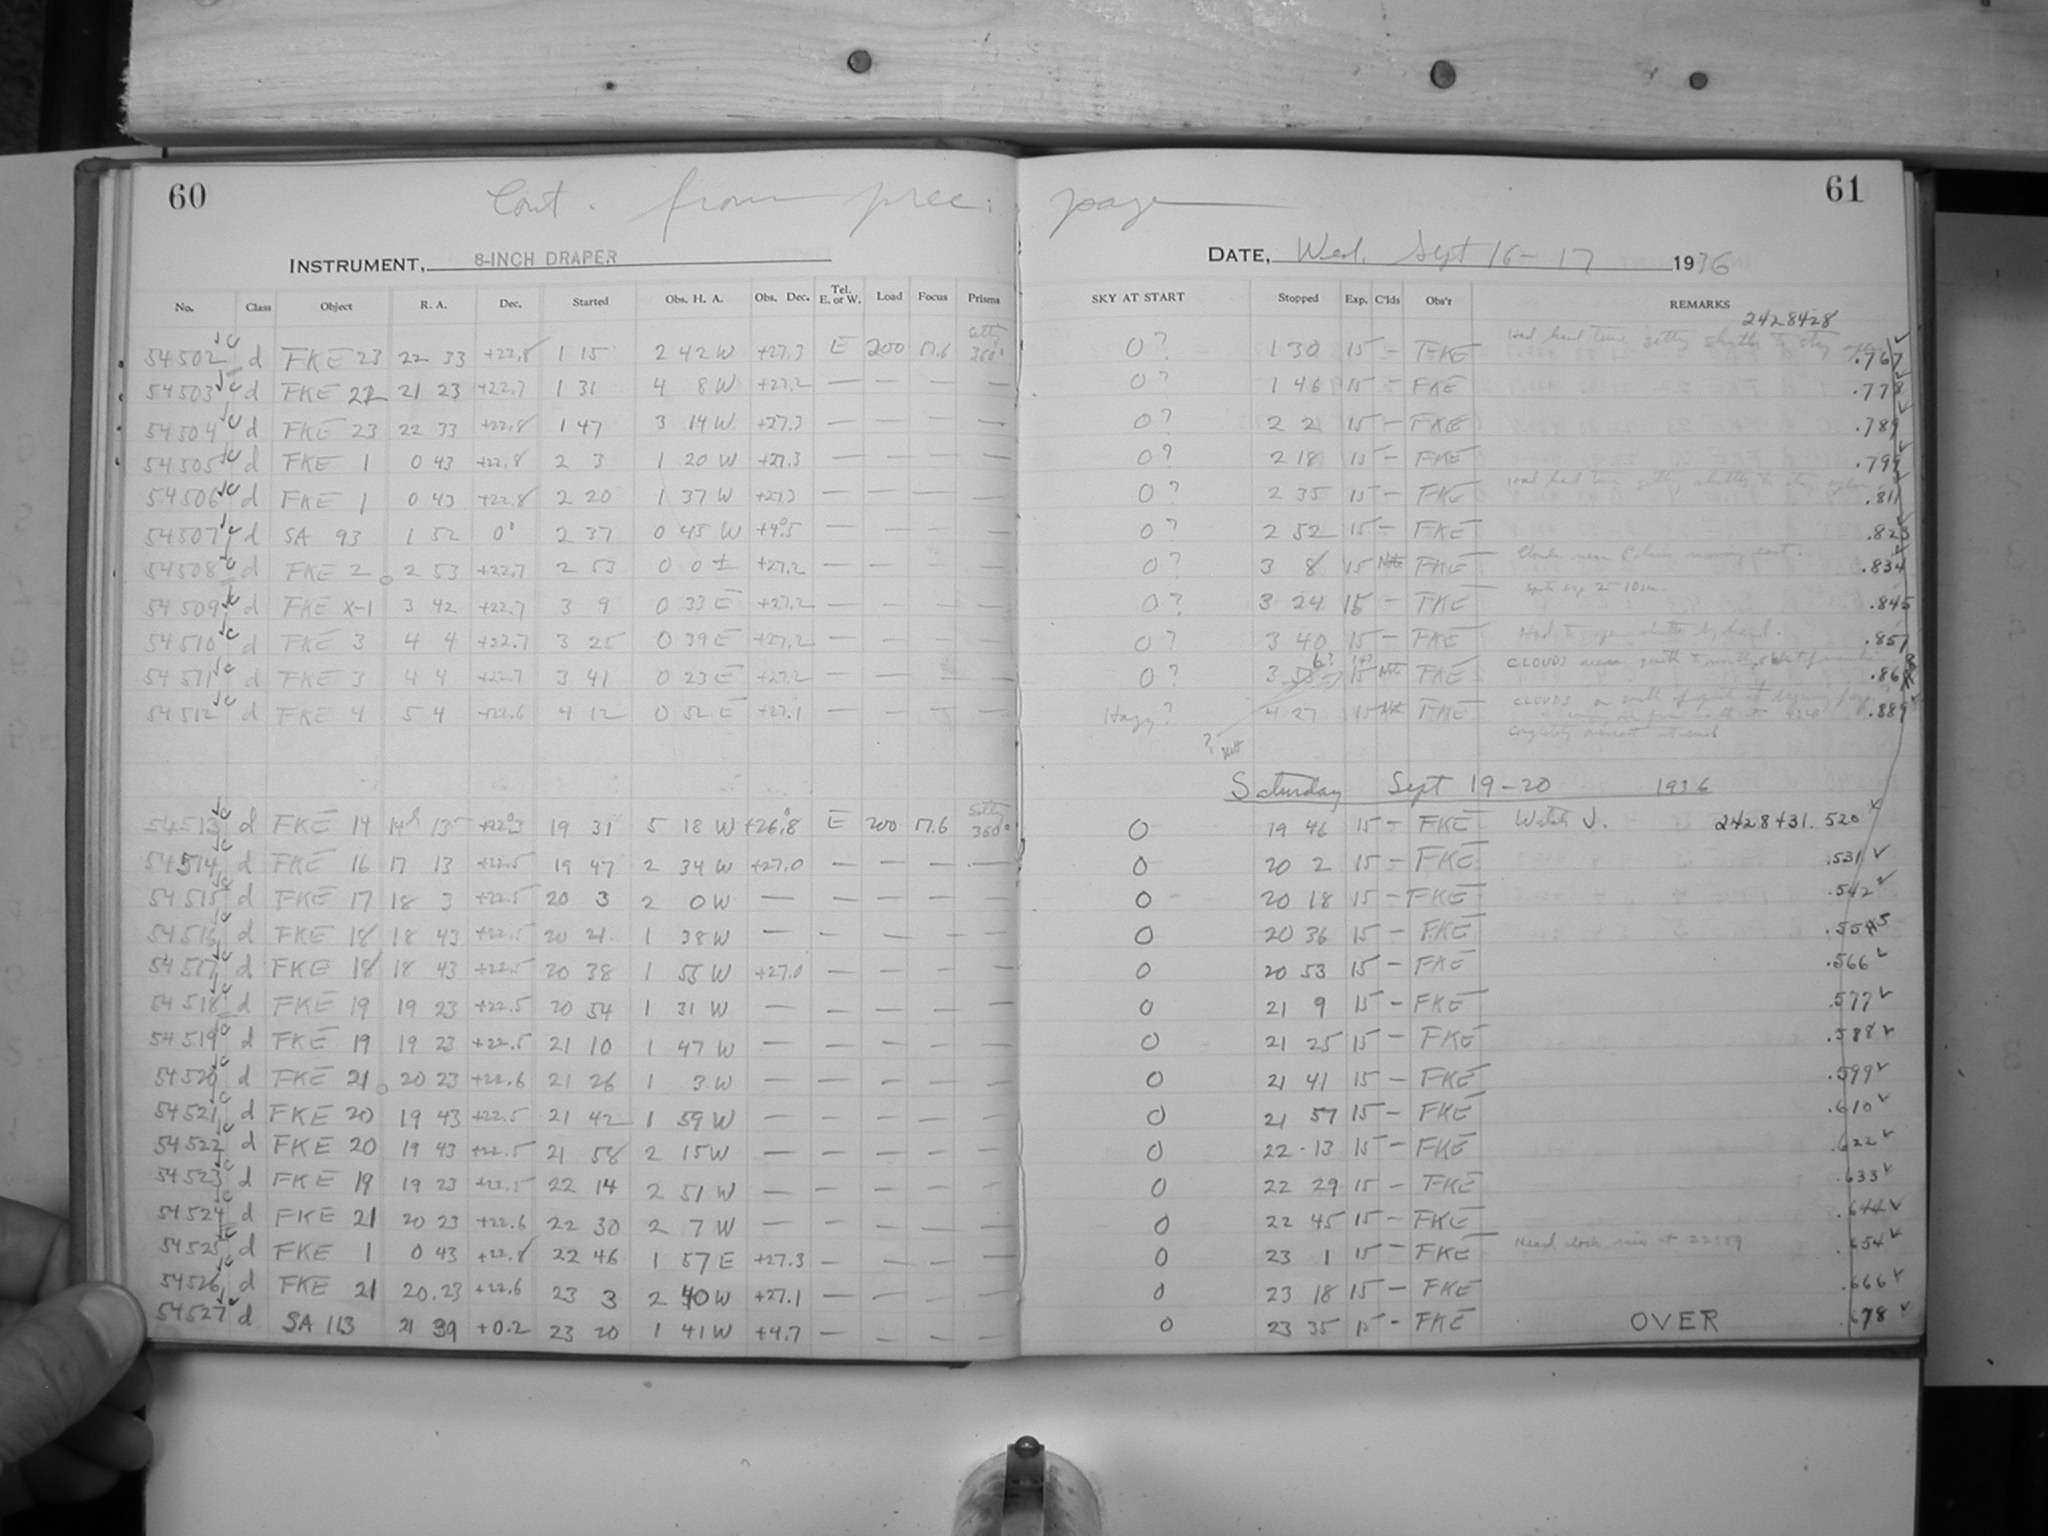 60 Cont. from prec. page 61
INSTRUMENT, 8-INCH DRAPER DATE, Wed. Sept 16-17 1936
No. Class Object R. A. Dec. Started Obs. H. A. Obs. Dec. Tel. E. or W. Load Focus Prisms SKY AT START Stopped Exp. C'lds Obs'r REMARKS
2428428
54502 d FKE 23 22 33 +22.8 1 15 2 42 W +27.3 E 200 17.6 360° O? 1 30 15 – FKE Had hard time getting shutter to stay open .767
54503 d FKE 22 21 23 +22.7 1 31 4 8 W +27.2 — — — — O? 1 46 15 – FKE .778
54504 d FKE 23 22 33 +22.8 1 47 3 14 W +27.3 — — — — O? 2 2 15 – FKE .789
54505 d FKE 1 0 43 +22.8 2 3 1 20 W +27.3 — — — — O? 2 18 15 – FKE .799
54506 d FKE 1 0 43 +22.8 2 20 1 37 W +27.3 — — — — O? 2 35 15 – FKE Had hard time getting shutter to stay open .811
54507 d SA 93 1 52 0° 2 37 0 45 W +4.5 — — — — O? 2 52 15 – FKE .823
54508 d FKE 2 2 53 +22.7 2 53 0 0 ± +27.2 — — — — O? 3 8 15 Note FKE Clouds near Polaris moving east. .834
54509 d FKE X-1 3 42 +22.7 3 9 0 33 E +27.2 — — — — O? 3 24 15 – FKE .845
54510 d FKE 3 4 4 +22.7 3 25 0 39 E +27.2 — — — — O? 3 40 15 – FKE Had to open shutter by hand. .857
54511 d FKE 3 4 4 +22.7 3 41 0 23 E +27.2 — — — — O? 3 56? 15 Note FKE CLOUDS .868
54512 d FKE 4 5 4 +22.6 4 12 0 52 E +27.1 — — — — Hazy? 4 27 15 Note FKE CLOUDS .889
Completely overcast at end
Saturday Sept 19-20 1936
54513 d FKE 14 14h 13 +22.3 19 31 5 18 W +26.8 E 200 17.6 360° O 19 46 15 – FKE Watch J. 2428431.520
54514 d FKE 16 17 13 +22.5 19 47 2 34 W +27.0 — — — — O 20 2 15 – FKE .531
54515 d FKE 17 18 3 +22.5 20 3 2 0 W — — — — — O 20 18 15 – FKE .542
54516 d FKE 18 18 43 +22.5 20 21 1 38 W — — — — — O 20 36 15 – FKE .555
54517 d FKE 18 18 43 +22.5 20 38 1 55 W +27.0 — — — — O 20 53 15 – FKE .566
54518 d FKE 19 19 23 +22.5 20 54 1 31 W — — — — — O 21 9 15 – FKE .577
54519 d FKE 19 19 23 +22.5 21 10 1 47 W — — — — — O 21 25 15 – FKE .588
54520 d FKE 21 20 23 +22.6 21 26 1 3 W — — — — — O 21 41 15 – FKE .599
54521 d FKE 20 19 43 +22.5 21 42 1 59 W — — — — — O 21 57 15 – FKE .610
54522 d FKE 20 19 43 +22.5 21 58 2 15 W — — — — — O 22 13 15 – FKE .622
54523 d FKE 19 19 23 +22.5 22 14 2 51 W — — — — — O 22 29 15 – FKE .633
54524 d FKE 21 20 23 +22.6 22 30 2 7 W — — — — — O 22 45 15 – FKE .644
54525 d FKE 1 0 43 +22.8 22 46 1 57 E +27.3 — — — — O 23 1 15 – FKE .654
54526 d FKE 21 20 23 +22.6 23 3 2 40 W +27.1 — — — — O 23 18 15 – FKE .666
54527 d SA 113 21 39 +0.2 23 20 1 41 W +4.7 — — — — O 23 35 15 – FKE OVER .678